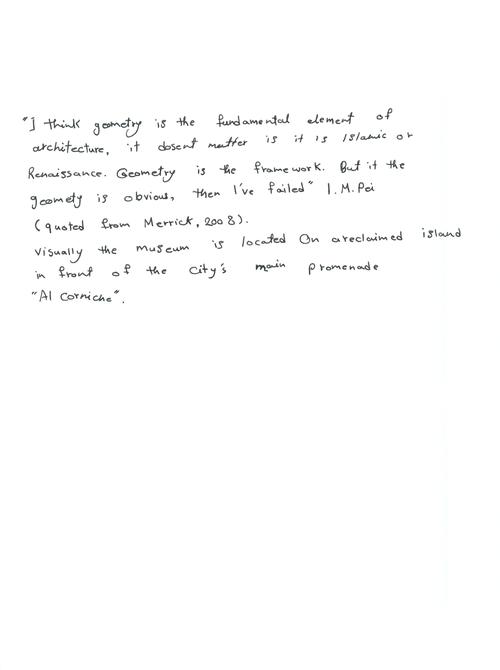 "I think geometry is the fundamental element of
architecture, it dosent matter is it is Islamic or
Renaissance. Geometry is the framework. But if the
geomety is obvious, then I've failed" I.M.Pei
(quoted from Merrick, 2008).
Visually the museum is located On areclaimed island
in front of the city's main promenade
"Al Corniche".